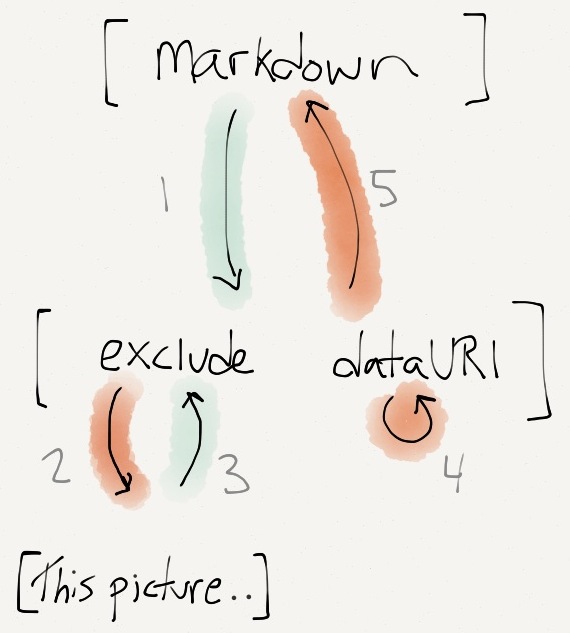 [ markdown ]
1 5
[ exclude dataURI ]
2 3 4
[This picture..]